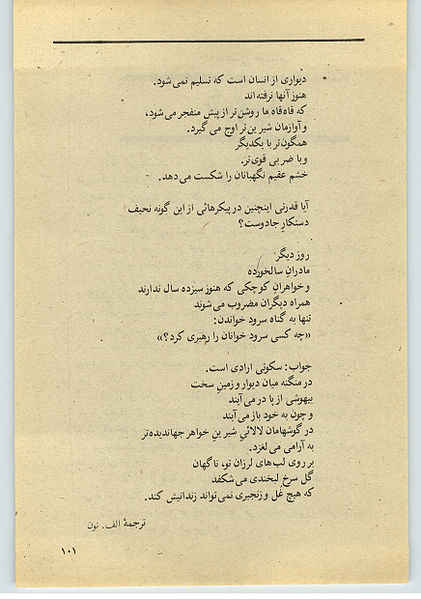 دیواری از انسان است که تسلیم نمی‌شود.
هنوز آنها نرفته‌اند
که قاه‌قاه ما روشن‌تر از پیش منفجر می‌شود،
و آوازمان شیرین‌تر اوج می‌گیرد.
همگون‌تر با یکدیگر
و با ضربی قوی‌تر.
خشم عقیم نگهبانان را شکست می‌دهد.
آیا قدرتی اینچنین در پیکرهائی از این گونه نحیف
دستکارِ جادوست؟
روز دیگر
مادرانِ سالخورده
و خواهرانِ کوچکی که هنوز سیزده سال ندارند
همراه دیگران مضروب می‌شوند
تنها به گناه سرود خواندن:
«چه کسی سرود خوانان را رهبری کرد؟»
جواب: سکوتی ارادی است.
در منگنه میان دیوار و زمینِ سخت
بیهوشی از پا در می‌آیند
و چون به خود باز می‌آیند
در گوشهامان لالائیِ شیرینِ خواهر جهاندیده‌تر
به آرامی می‌لغزد.
بر روی لب‌های لرزان تو، ناگهان
گل سرخ لبخندی می‌شکفد
که هیچ غُل و زنجیری نمی‌تواند زندانیش کند.
ترجمهٔ الف. نون
۱۰۱